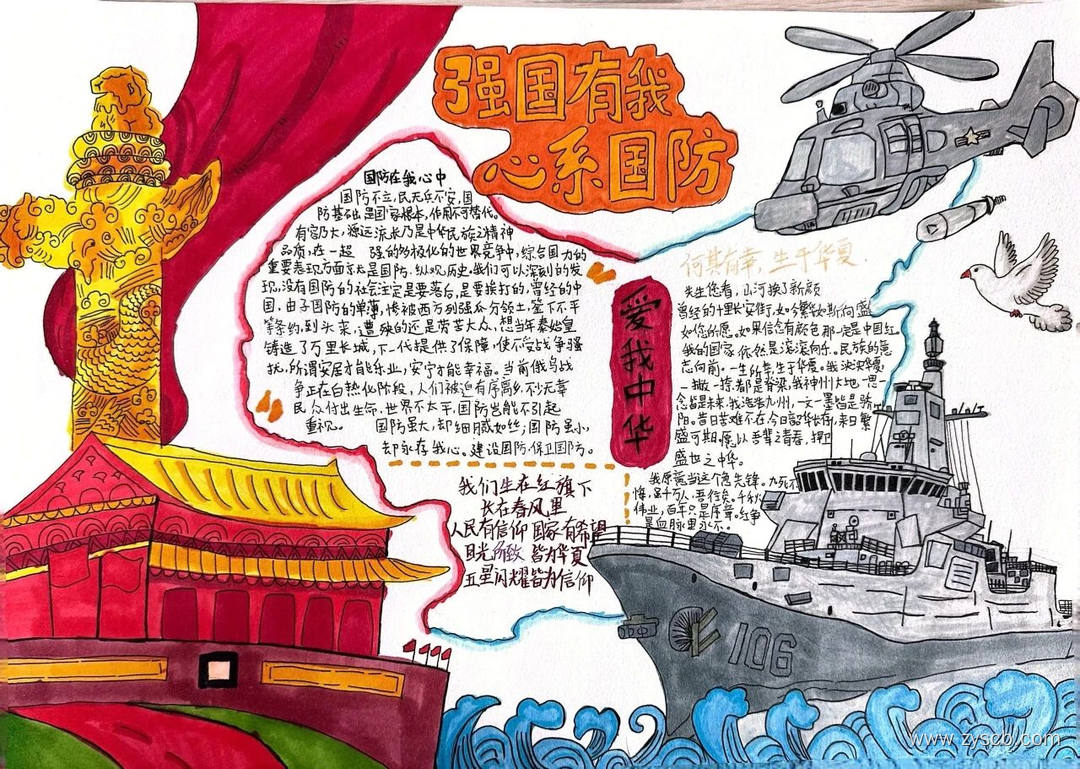 强国有我
心系国防
国防在我心中
国防不立,民无兵不安,国
防基础是国家根本,作用不可替代。
有容乃大,源远流长乃是中华民族之精神
品质,在一超 强的多极化的世界竞争中,综合国力的
重要表现方面亦是国防.纵观历史,我们可以深刻的发
现,没有国防的社会注定是要落后,是要挨打的,曾经的中
国,由于国防的单薄,惨被西方列强瓜分领土,签下不平
等条约,到头来,遭殃的还是劳苦大众、想当年秦始皇
铸造了万里长城,下一代提供了保障,使不安战争骚
扰,所谓安居才能乐业,安宁才能幸福。当前俄乌战
争正在白热化阶段,人们被迫有序离乡,不少无辜
民众付出生命,世界不太平,国防岂能不引起
重视。 国防虽大,却细腻如丝;国防虽小,
却永存我心。建设国防,保卫国防。
我们生在红旗下
长在春风里
人民有信仰 国家有希望
目光所致 皆为华夏
五星闪耀皆为信仰
爱我中华
何其有幸,生于华夏.
先生您看,山河换了新颜
曾经的十里长安街,如今繁如斯向盛
如您所愿。如果信念有颜色那一定是中国红
我的国家,依然是滚滚向东。民族的意
志向前.一生所幸,生于华夏。我泱泱华夏
一撇一捺都是脊梁,我神州大地一思一
念皆是未来,我浩荡九州,一文一墨皆是骄
阳。昔日苦难不在,今日韶华长存,来日繁
盛可期.愿以吾辈之青春,捍卫
盛世之中华。
我原意当这个急先锋。九死不
悔,虽千万人,吾往矣。千秋
伟业,百年只是序章。红争
是血脉里永不
106
www.zyscb.com